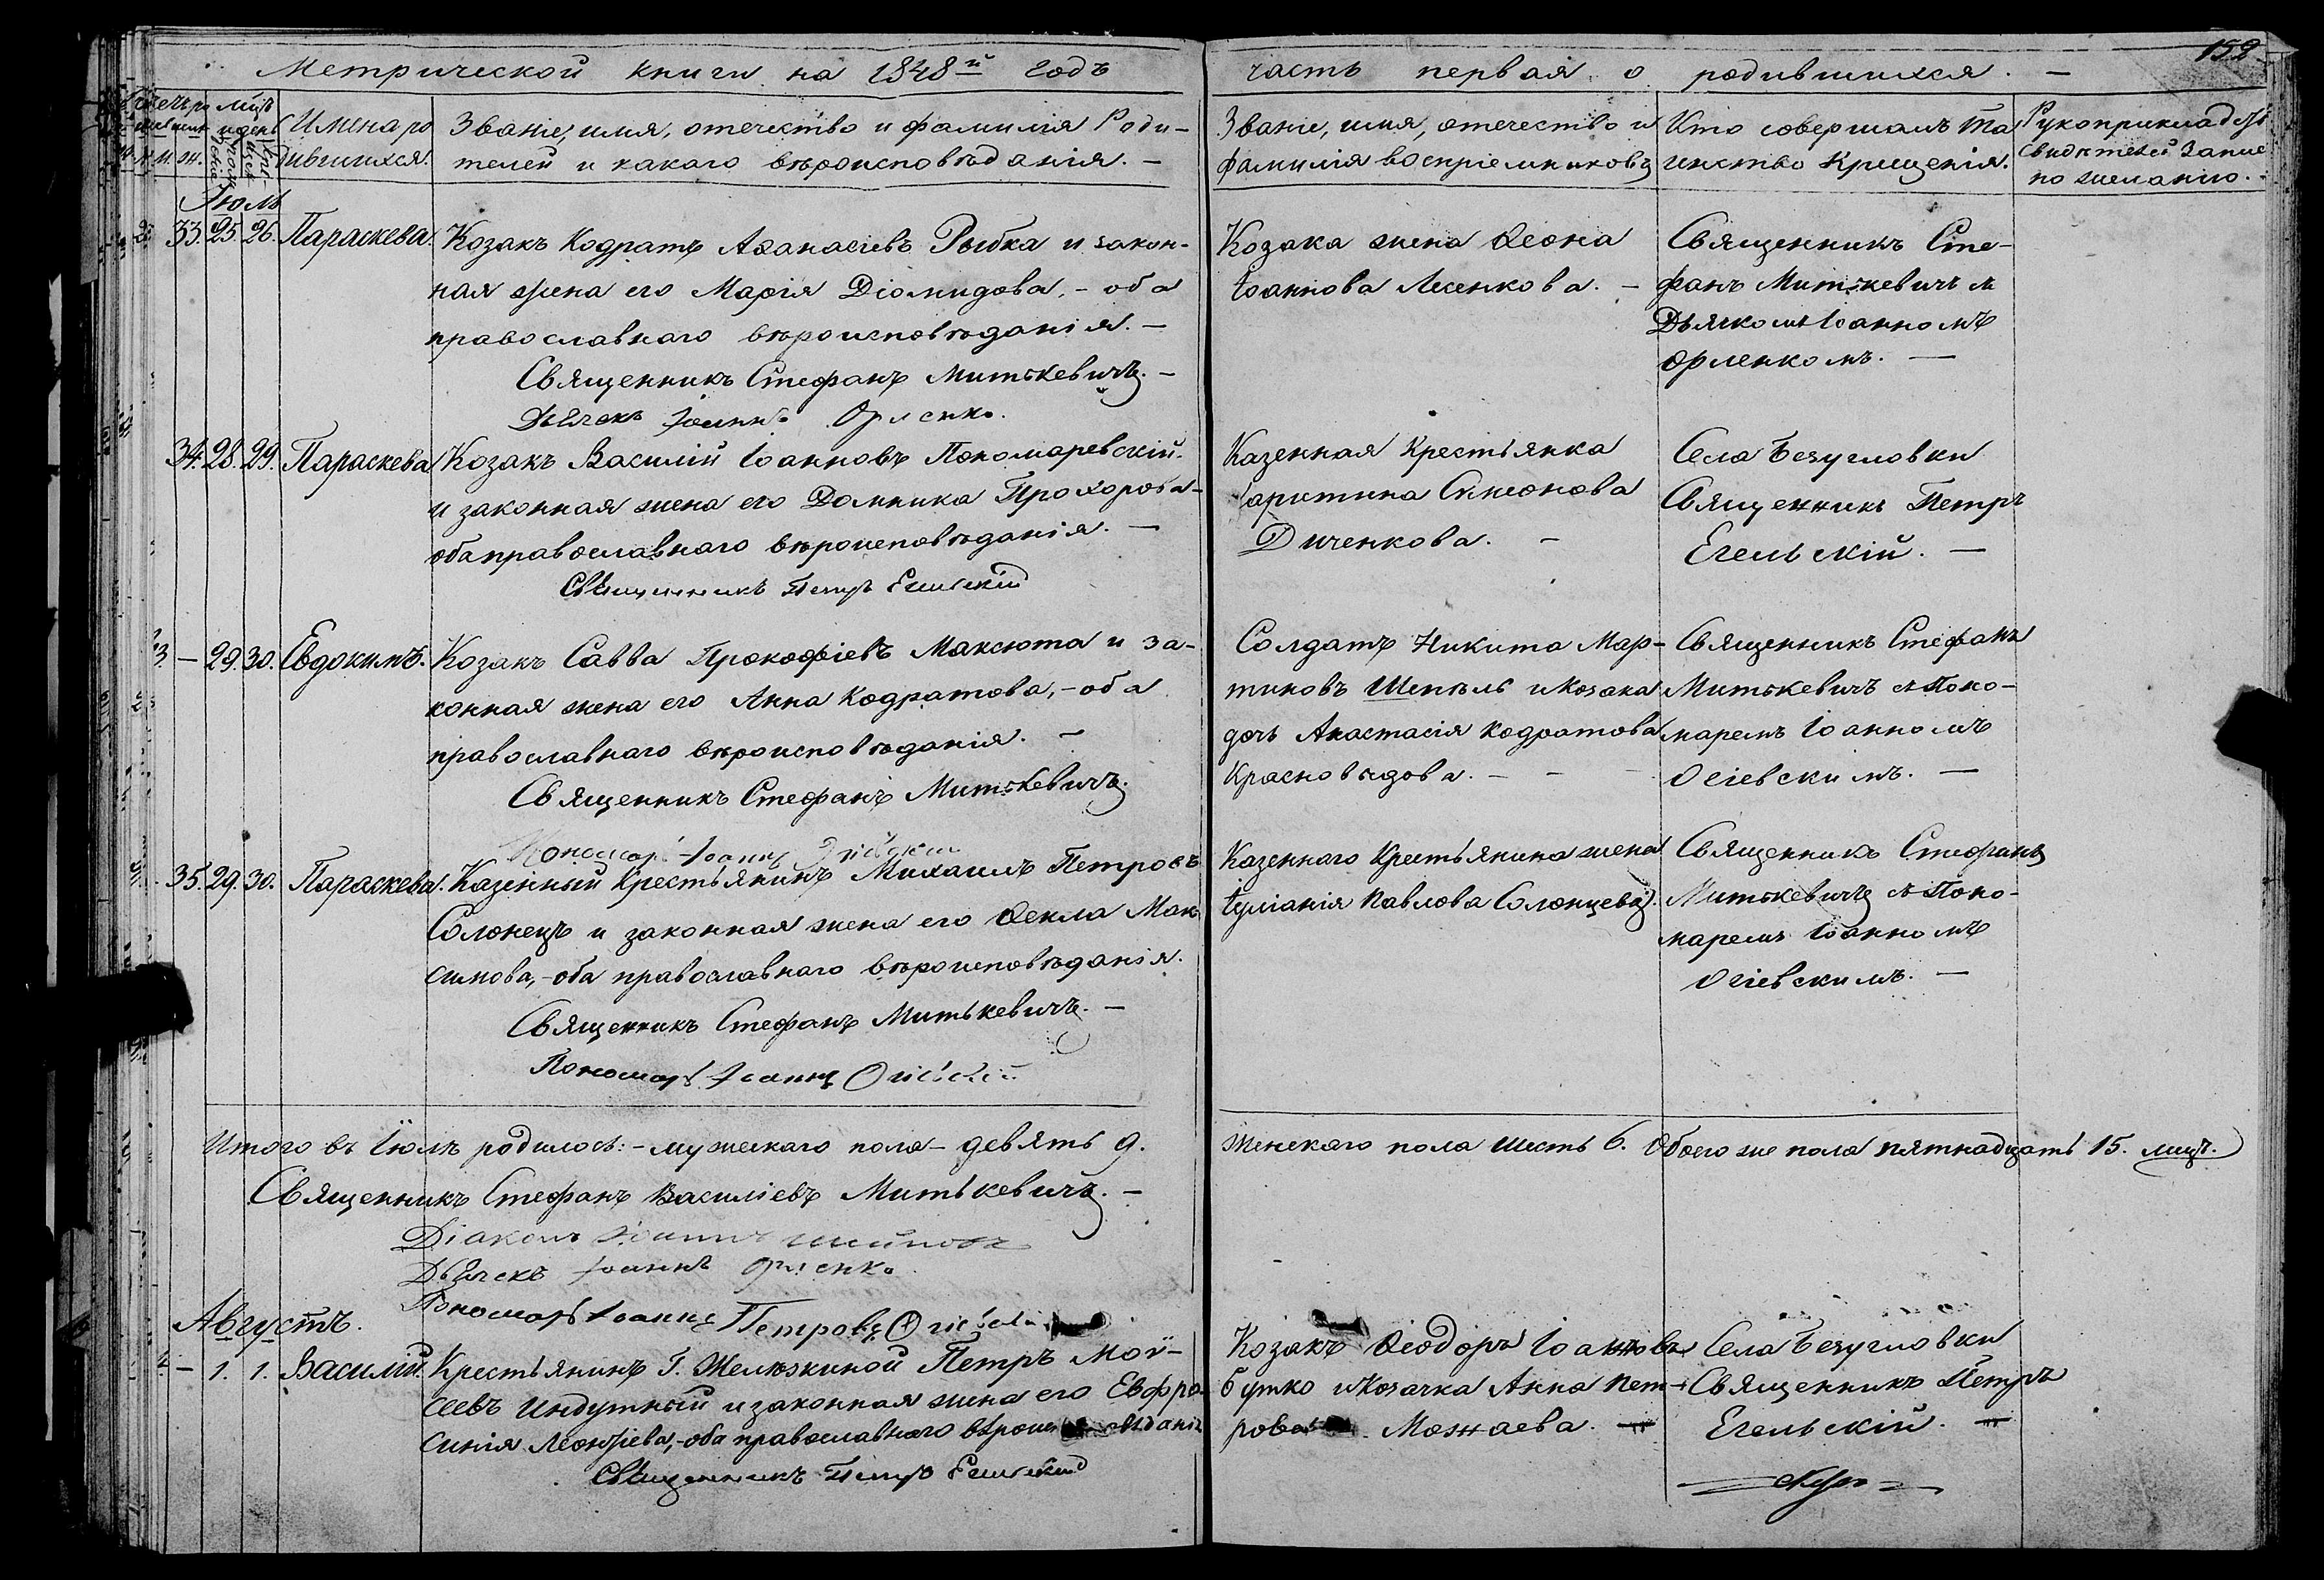 Метрической книги на 1848й годъ
часть первая о родившихся. —
152
Имена ро
дившихся.
Званіе, имя, отечество и фамилія Роди-
телей и какаго вѣроисповѣданія. —
Званіе, имя, отечество и
фамилія воспріемниковъ
Кто совершалъ та
инство Крещенія.
Рукоприклад
свидѣтелей запис
по желанію. -
Іюль
33. 25. 26. Параскева. Козакъ Кодратъ Аѳанасіевъ Рыбка и закон-
ная жена его Марія Діомидова, - оба
православнаго вѣроисповѣданія. —
Священникъ Стефанъ Митькевичъ. —
Дьячекъ Іоаннъ Орленко.
Козака жена Ѳеона
Іоаннова Лесенкова. —
Священникъ Сте-
фанъ Митькевичъ съ
Дьячкомъ Іоанномъ
Орленкомъ. —
34. 28. 29. Параскева Козакъ Василій Іоанновъ Пономаревскій
и законная жена его Домника Прохорова -
оба православнаго вѣроисповѣданія. —
Священникъ Петръ Егельскій
Казенная Крестьянка
Харитина Симеонова
Диченкова. -
Села Безугловки
Священникъ Петръ
Егельскій. —
3 — 29. 30. Евдокимъ. Козакъ Савва Прокофіевъ Максюта и за-
конная жена его Анна Кодратова, - оба
православнаго вѣроисповѣданія. —
Священникъ Стефанъ Митькевичъ.
Пономарь Іоаннъ Огіевскій
Солдатъ Никита Мар-
тиновъ Шепель и Козака
дочь Анастасія Кодратова
Красновидова. - - -
Священникъ Стефанъ
Митькевичъ съ Поно-
маремъ Іоанномъ
Огіевскимъ. —
35. 29. 30. Параскева. Казенный Крестьянинъ Михаилъ Петровъ
Солонецъ и законная жена его Ѳекла Мак
симова, - оба православнаго вѣроисповѣданія.
Священникъ Стефанъ Митькевичъ. —
Пономарь Іоаннъ Огіевскій
Казеннаго Крестьянина жена
Іуліанія Павлова Солонцева.
Священникъ Стефанъ
Митькевичъ съ Поно-
маремъ Іоанномъ
Огіевскимъ. —
Итого въ Іюлѣ родилось: - мужескаго пола - девять 9.
женскаго пола шесть 6. Обоего же пола пятнадцать 15. лицъ.
Священникъ Стефанъ Василіевъ Митькевичъ. —
Діаконъ Іоаннъ
Дьячекъ Іоаннъ Орленко
Пономарь Іоаннъ Петровъ Огіевскій
Августъ.
— 1. 1. Василій. Крестьянинъ Г. Желѣзкиной Петръ Мой-
сеевъ Индутный и законная жена его Евфро-
синія Леонтіева, - оба православнаго вѣроисповѣданія
Священникъ Петръ Егельскій
Козакъ Ѳеодоръ Іоанновъ
Бутко и Козачка Анна Пет-
рова Можаева. —
Села Безугловки
Священникъ Петръ
Егельскій. —